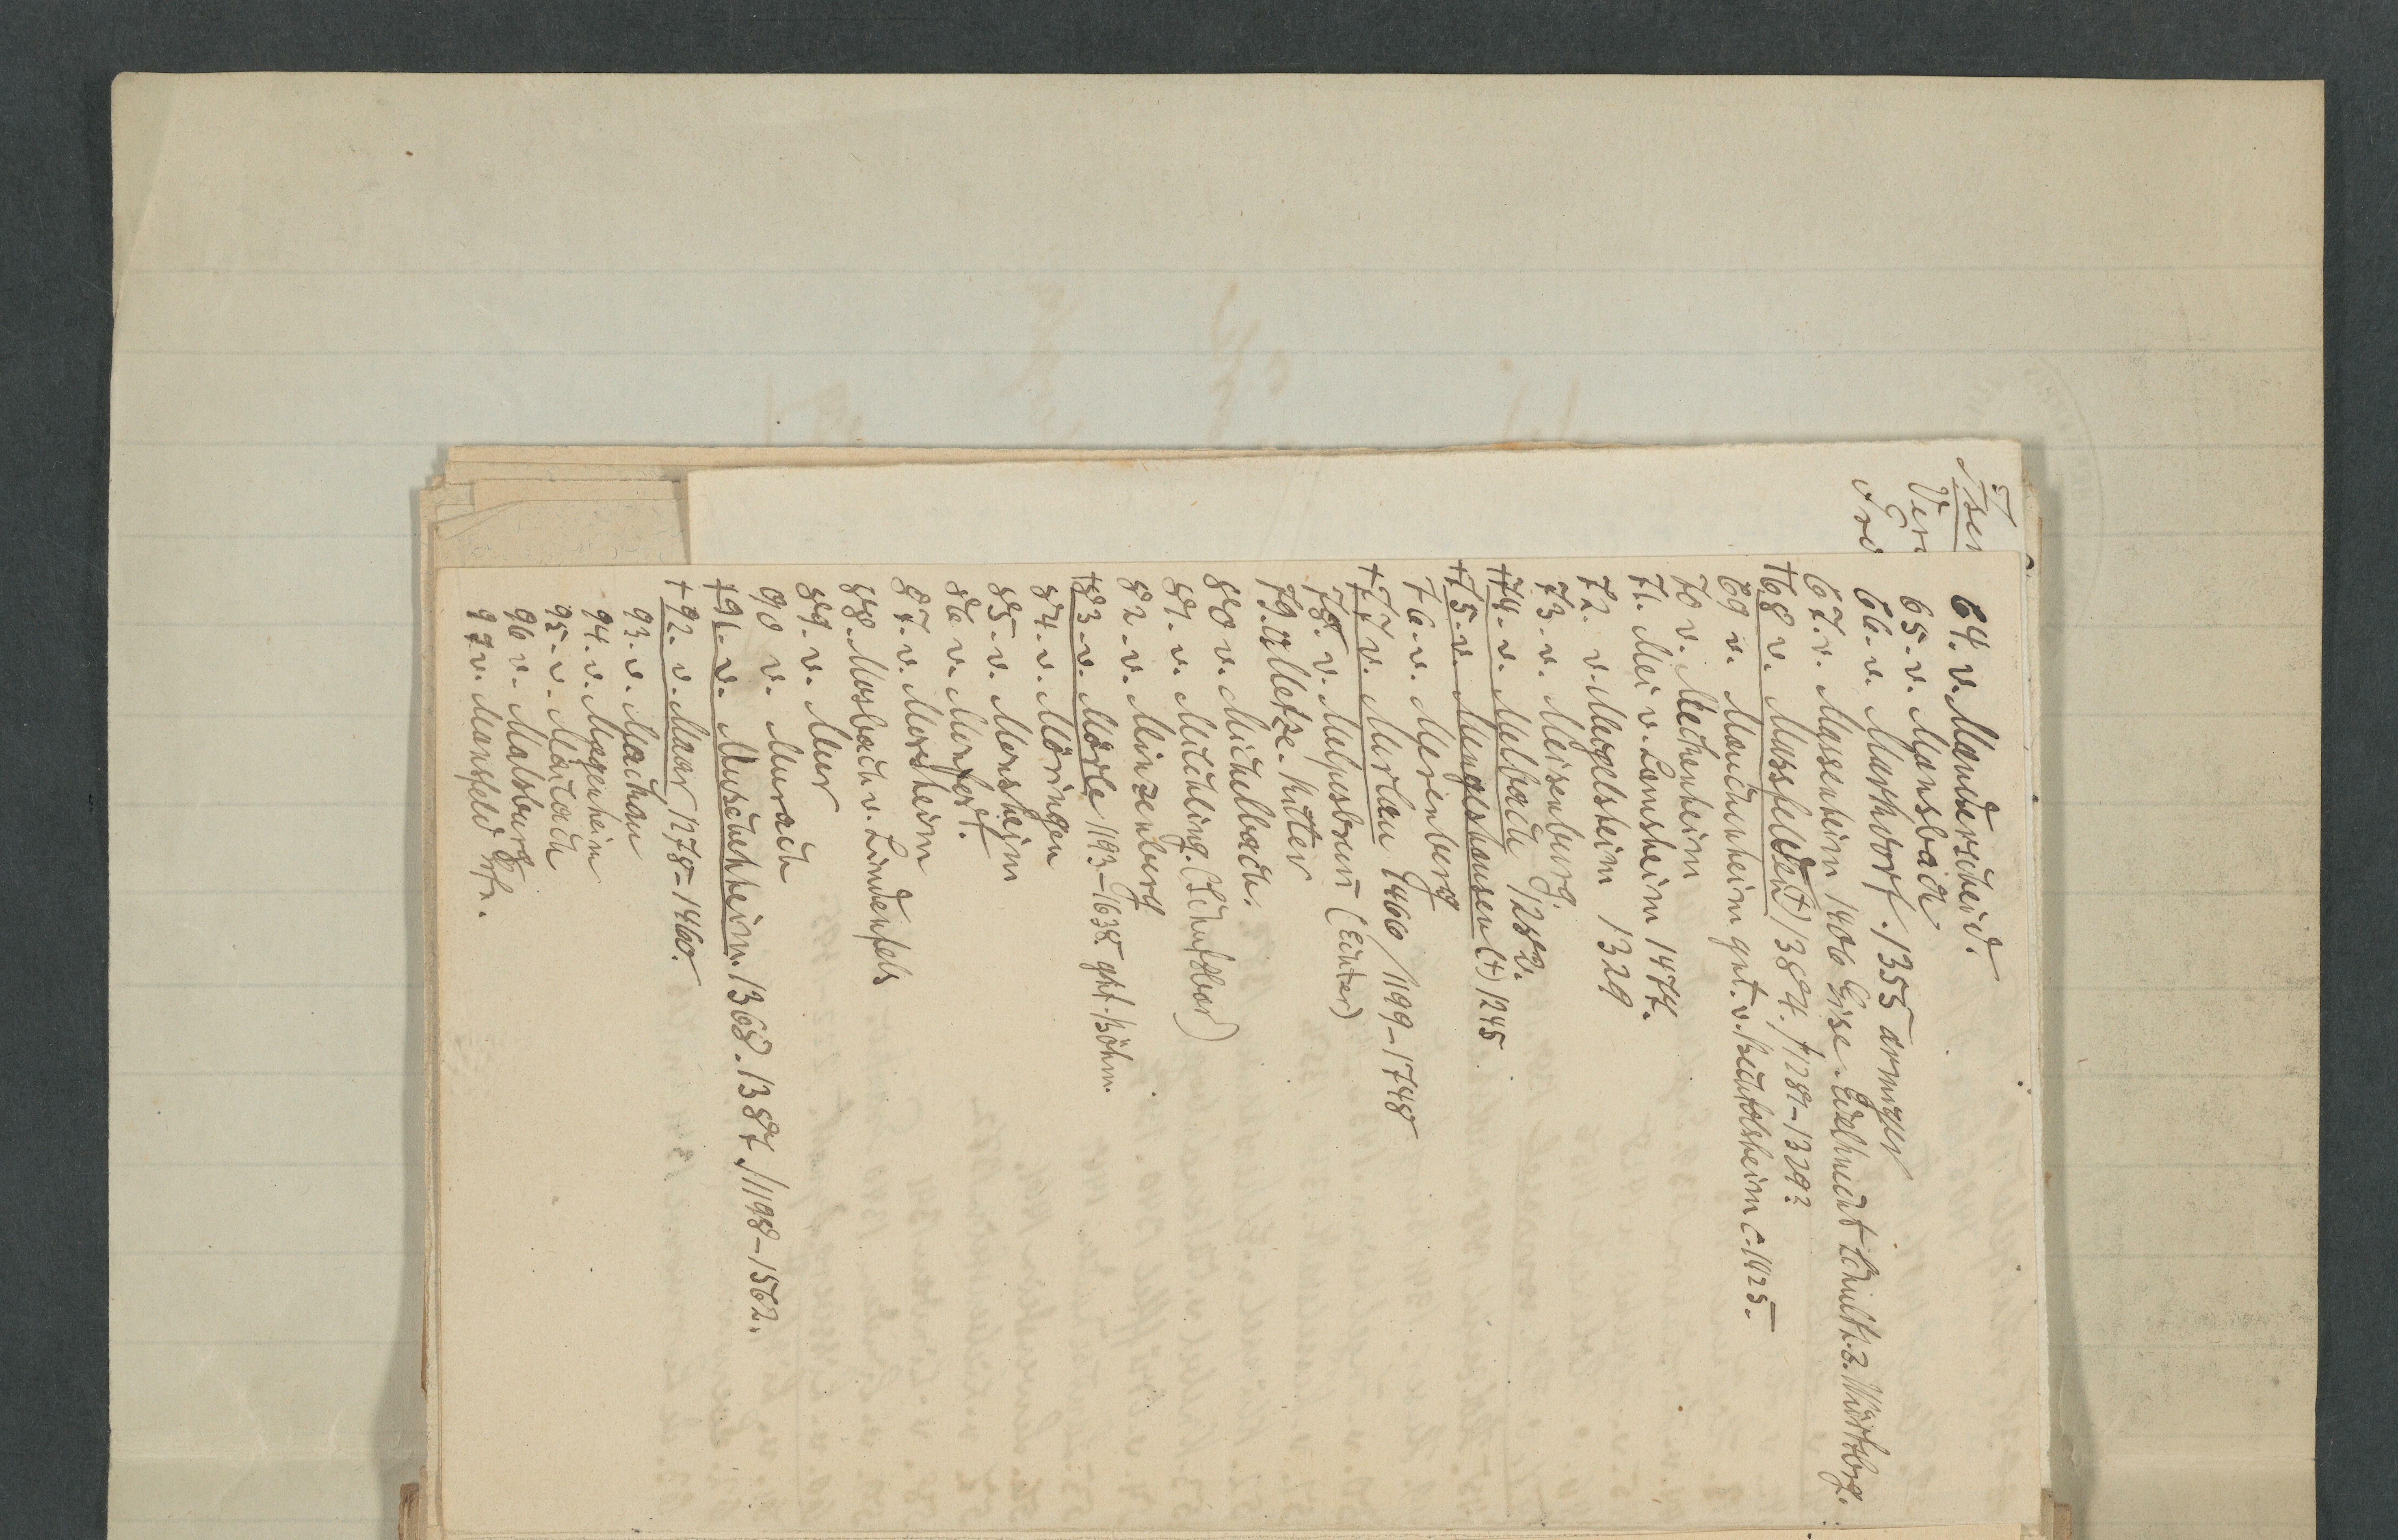 Isen
Ver
Fro
64. v. Manderscheid.
65. v. Mansbach
66. v. Markdorf. 1355 armiger
67. v. Massenheim 1406 Gise. Edelknecht Schulth. z. Würtzbrg.
+68 v. Massfelden(+) 1384. /1289-1329?
69 v. Mauchenheim gnt. v. Bechtolsheim c. 1425.
70 v. Meckenheim
71. Mei v. Lamsheim 1474.
72. v. Megelsheim 1329
73. v. Meisenburg.
+74. v. Melbach 1282.
+75. v. Mengelshausen (+) 1245
76. v. Merenberg
+77 v. Merlau 1466 /1199-1748
78. v. Melpusbrun (Ritter)
79. a Metze. Ritter
80 v. Michelbach.
81. v. Milchling. (Schutzbar)
82. v. Minzenberg
+83. v. Mörle 1193-1638. gnt. Böhm.
84. v. Möringen
85. v. Morsheim
86 v. Monfort.
87. v. Morsheim
88. Mosbach v. Lindenfels
89. v. Muer
90 v. Murach
+91. v. Muschenheim. 1368. 1387. /1198-1562.
+92. v. Maar 1278-1460.
93. v. Mackau
94. v. Magenheim
95. v. Marbach
96 v. Malsburg
97 v. Mansfeld Grfn.